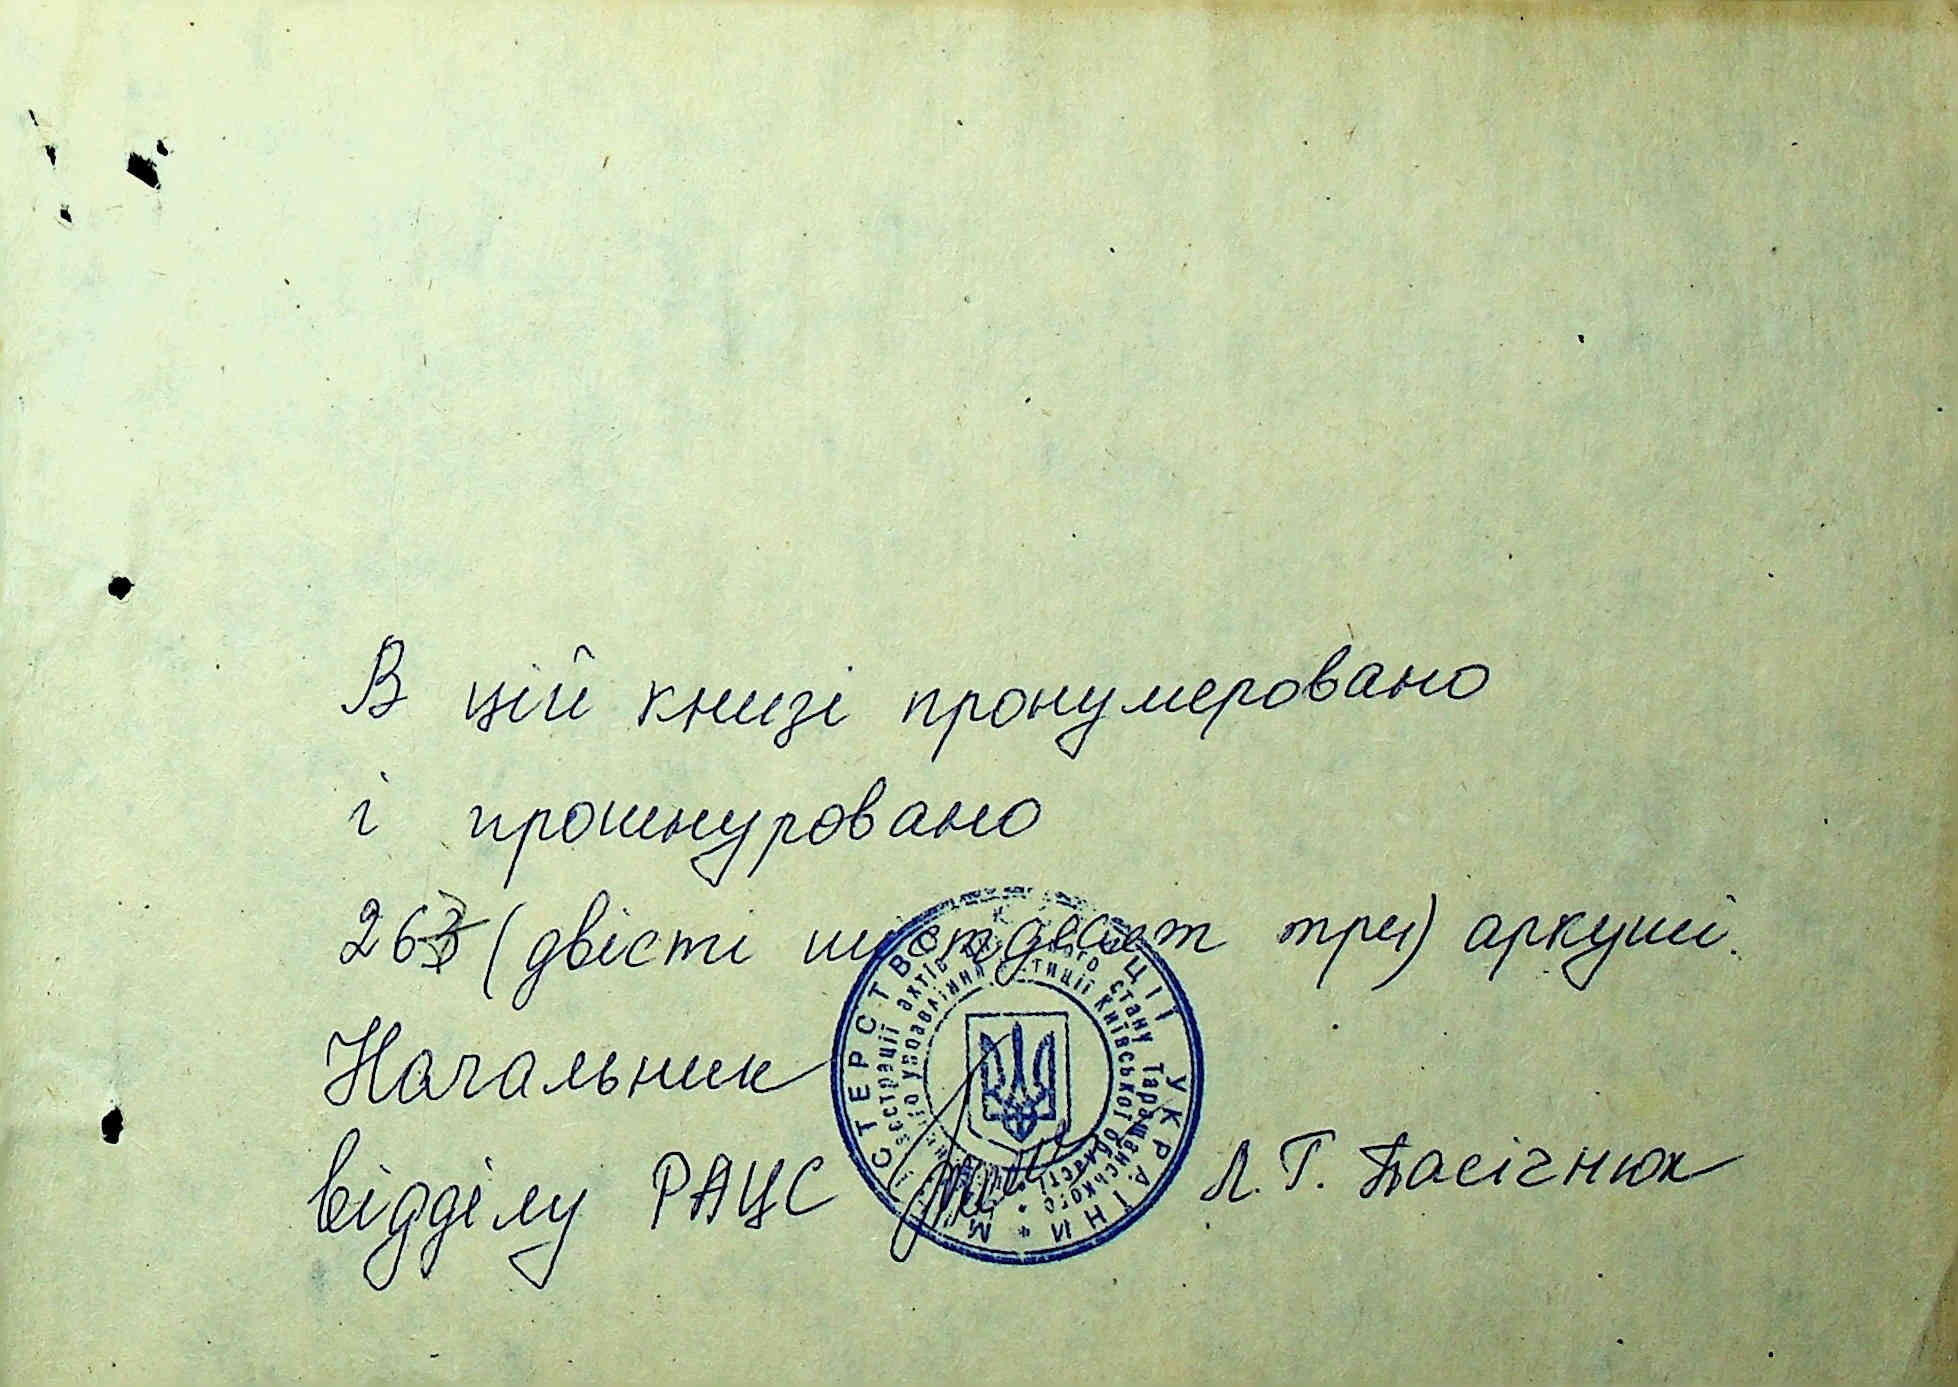 В цій книзі пронумеровано
і прошнуровано
263 (двісті шістдесят три) аркуші.
Начальник
відділу РАЦС Л. Г. Пасічнюк
МІНІСТЕРСТВО ЮСТИЦІЇ УКРАЇНИ *
реєстрації актів стану Таращанського
управління юстиції Київської області *